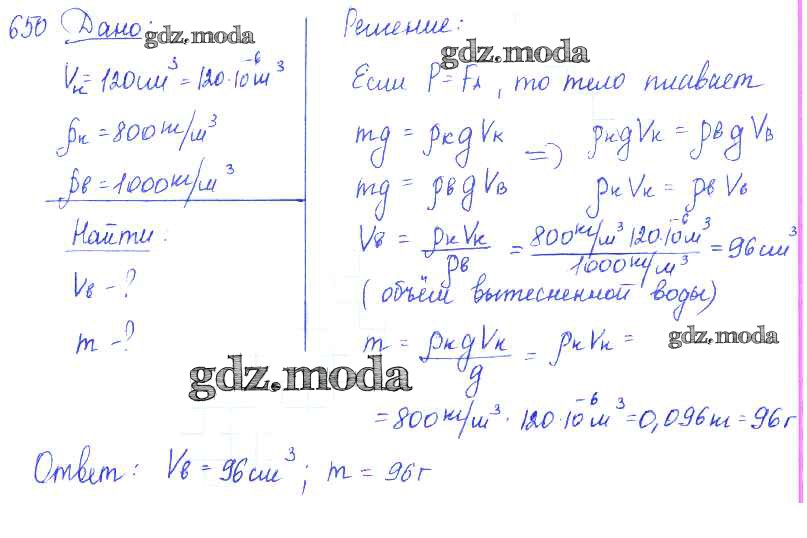 650 Дано:
gdz.moda
Vк = 120 см³ = 120·10⁻⁶ м³
ρк = 800 кг/м³
ρв = 1000 кг/м³
Найти:
Vв - ?
m - ?
Решение:
gdz.moda
Если P = Fа, то тело плавает
mg = ρк g Vк => ρк g Vк = ρв g Vв
mg = ρв g Vв ρк Vк = ρв Vв
Vв = ρк Vк / ρв = 800 кг/м³ 120·10⁻⁶ м³ / 1000 кг/м³ = 96 см³
(объём вытесненной воды)
m = ρк g Vк / g = ρк Vк =
gdz.moda
gdz.moda
= 800 кг/м³ · 120·10⁻⁶ м³ = 0,096 кг = 96 г
Ответ: Vв = 96 см³; m = 96 г